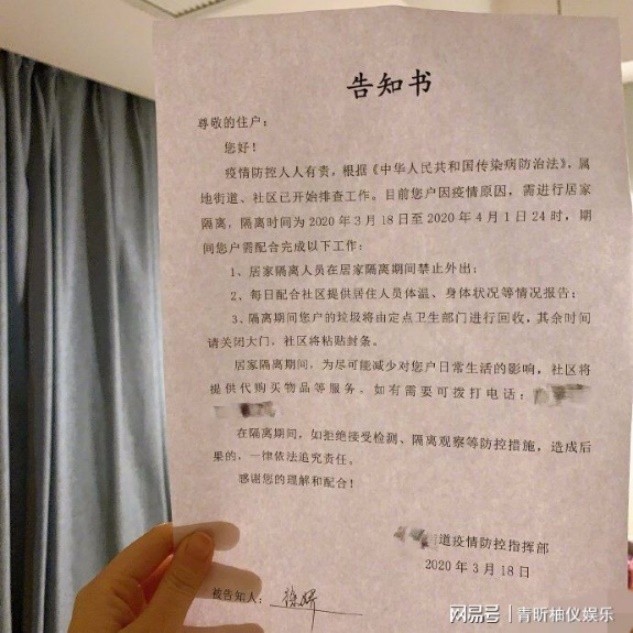 告知书
尊敬的住户：
您好！
疫情防控人人有责，根据《中华人民共和国传染病防治法》，属
地街道、社区已开始排查工作。目前您户因疫情原因，需进行居家
隔离，隔离时间为 2020 年 3 月 18 日至 2020 年 4 月 1 日 24 时，期
间您户需配合完成以下工作：
1、居家隔离人员在居家隔离期间禁止外出；
2、每日配合社区提供居住人员体温、身体状况等情况报告；
3、隔离期间您户的垃圾将由定点卫生部门进行回收，其余时间
请关闭大门，社区将粘贴封条。
居家隔离期间，为尽可能减少对您户日常生活的影响，社区将
提供代购买物品等服务。如有需要可拨打电话：
在隔离期间，如拒绝接受检测、隔离观察等防控措施，造成后
果的，一律依法追究责任。
感谢您的理解和配合！
道疫情防控指挥部
2020 年 3 月 18 日
被告知人：徐娇
网易号 | 青昕柚仪娱乐